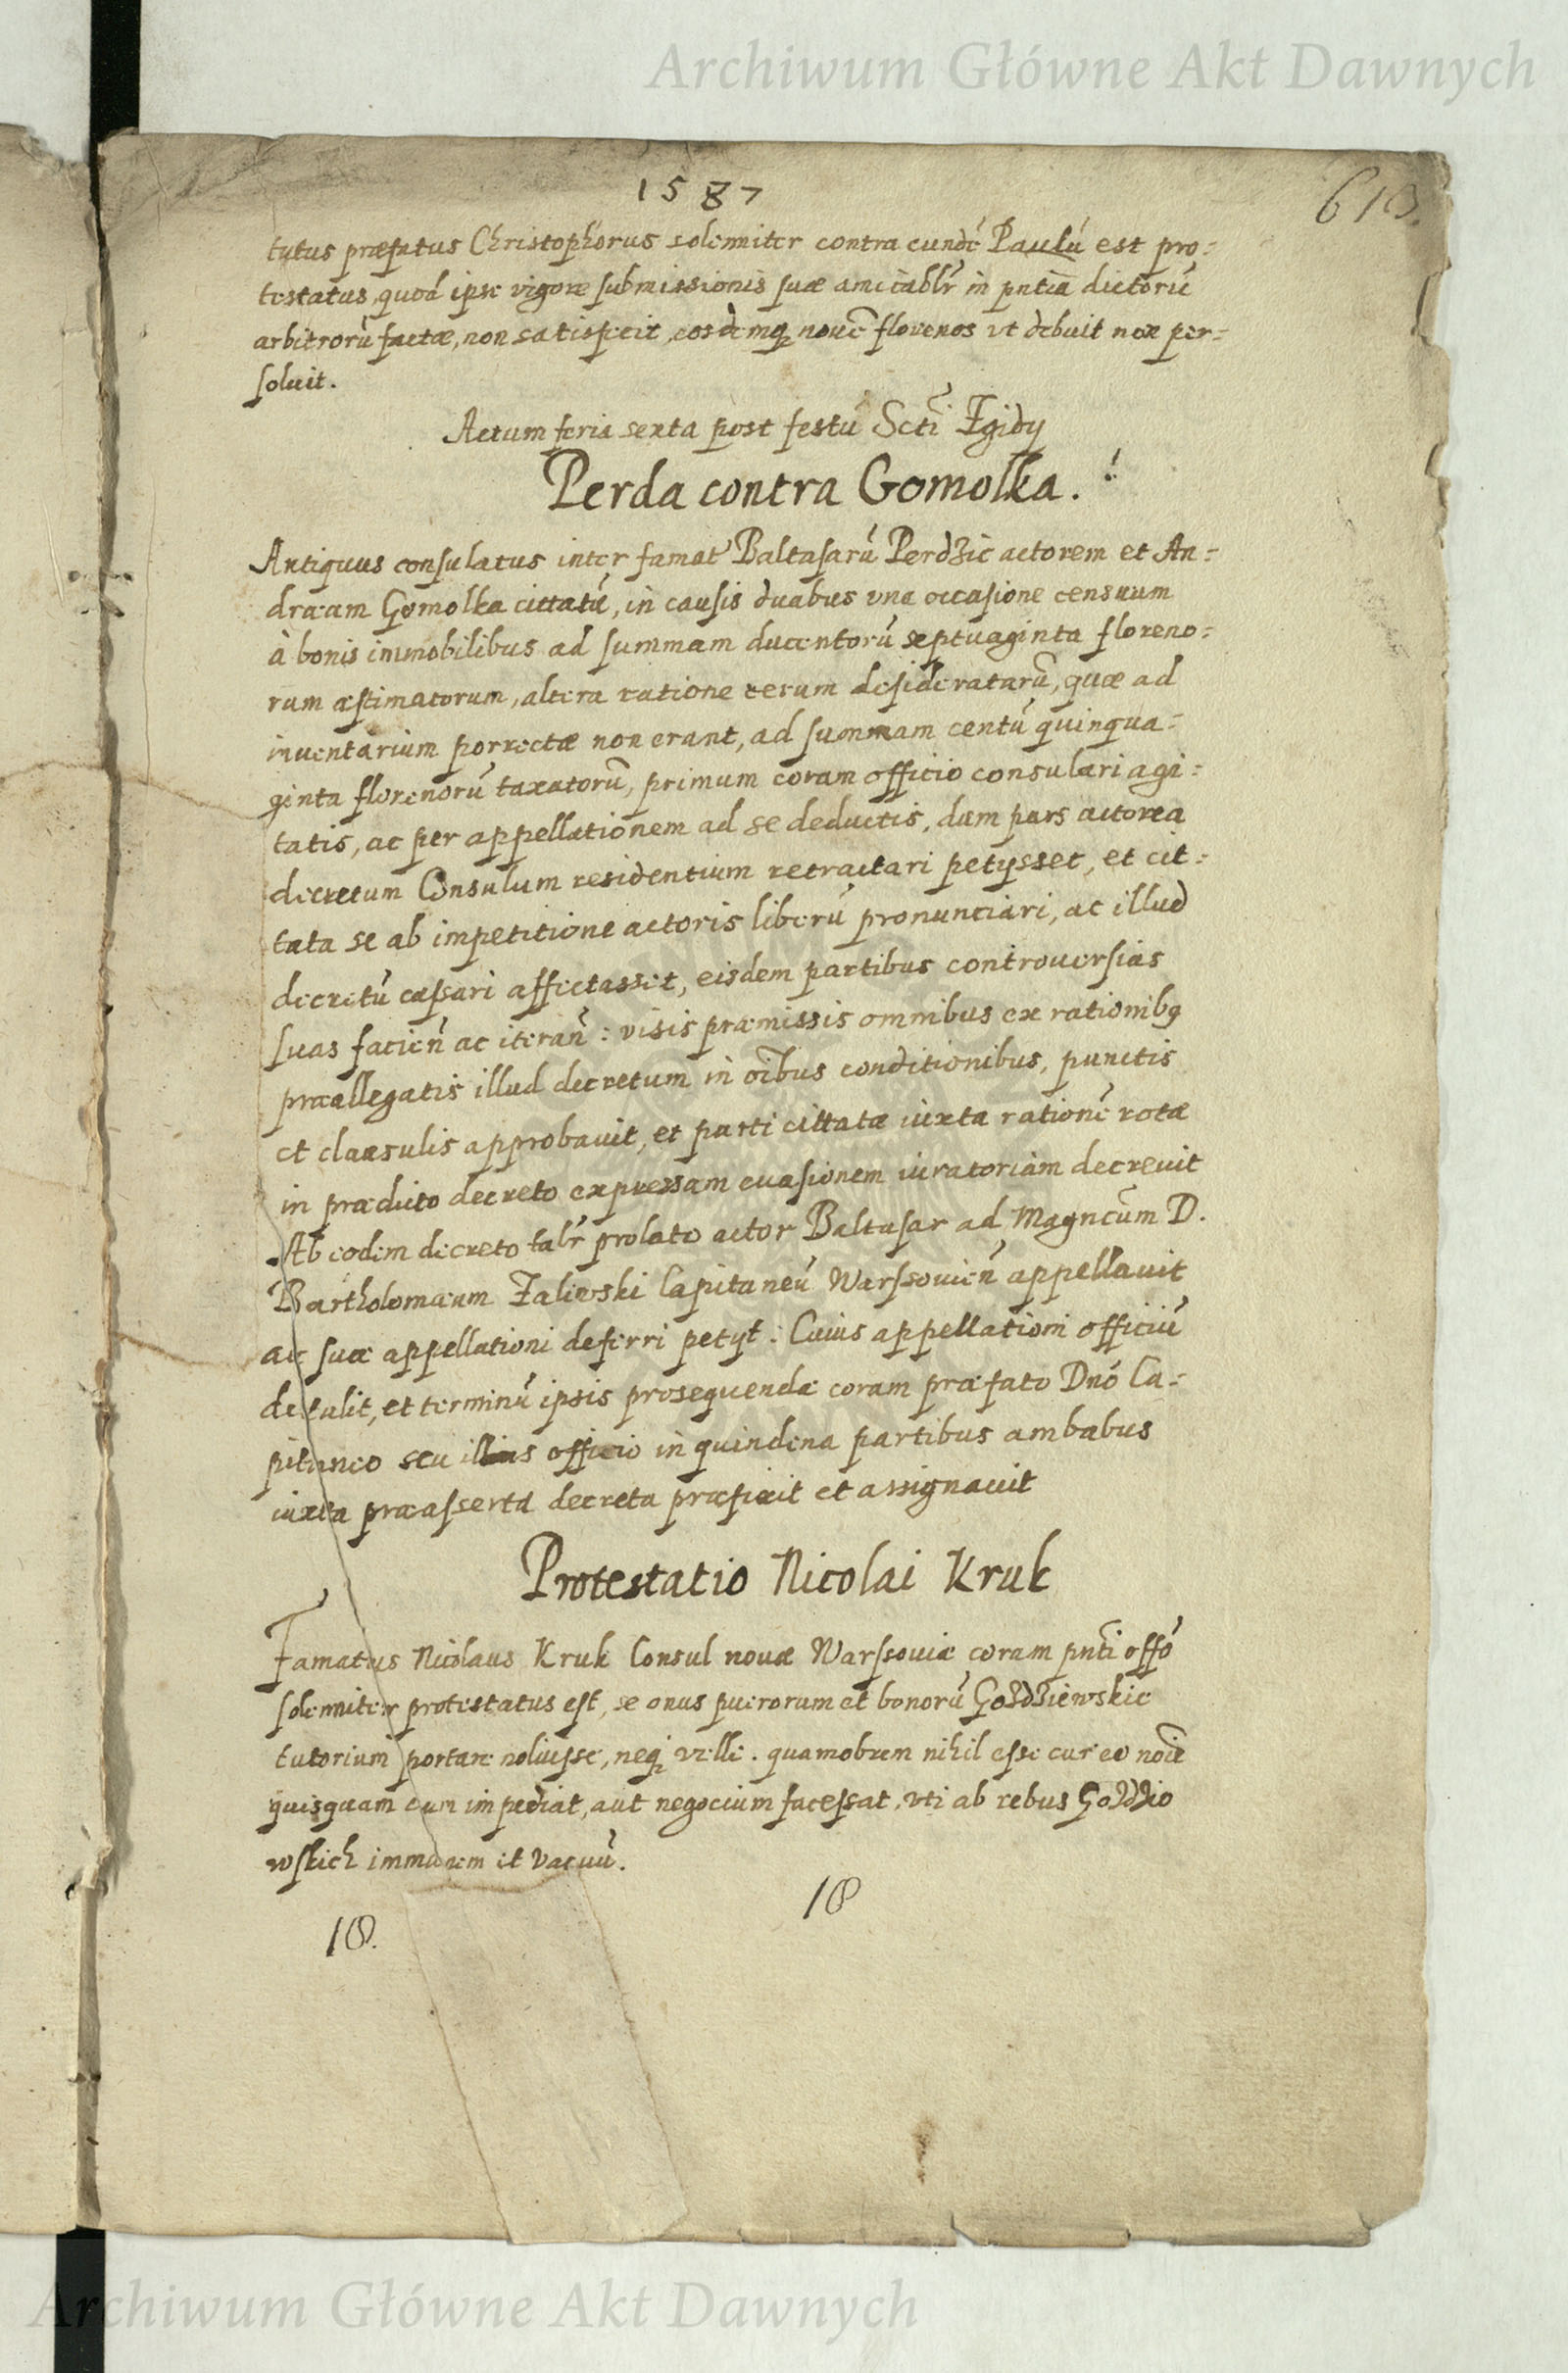 Archiwum Główne Akt Dawnych
1587
610.
tutus præfatus Christophorus solenniter contra eundē Paulū est pro=
testatus, quod ipse vigore submissionis suæ amicablr in pntia dictorū
arbitrorū factæ, non satisfecit, eosdemq nouē florenos vt debuit non per=
soluit.
Actum feria sexta post festū Scti Egidy
Perda contra Gomolka.
Antiquus consulatus inter famat Baltasarū Perdzic actorem et An=
dræam Gomolka cittatū, in causis duabus vna occasione censuum
à bonis immobilibus ad summam ducentorū septuaginta floreno=
rum æstimatorum, altera ratione rerum desideratarū, quæ ad
inuentarium porrectæ non erant, ad summam centū quinqua=
ginta florenorū taxatorū, primum coram officio consulari agi=
tatis, ac per appellationem ad se deductis, dum pars actorea
decretum Consulum residentium retractari petysset, et cit=
tata se ab impetitione actoris liberū pronunciari, ac illud
decretū cassari affectasset, eisdem partibus controuersias
suas facien ac iteran : visis præmissis omnibus ex rationibq
præallegatis illud decretum in oibus conditionibus, punctis
et clausulis approbauit, et parti cittatæ iuxta rationē rotæ
in prædicto decreto expressam euasionem iuratoriam decreuit
Ab eodem decreto talr prolato actor Baltasar ad Magncum D.
Bartholomæum Zaliwski Capitaneū Warssouien appellauit
ac suæ appellationi deferri petyt : Cuius appellationi officiū
detulit, et terminū ipsis prosequendæ coram præfato Dno Ca=
pitaneo seu illius officio in quindena partibus ambabus
iuxta præasserta decreta præfixit et assignauit
Protestatio Nicolai Kruk
Famatus Nicolaus Kruk Consul nouæ Warssouiæ coram pnti offo
solenniter protestatus est, se onus puerorum et bonorū Gozdziewskie
tutorium portare noluisse, neq velle. quamobrem nihil esse cur eo noie
quisquam eum impediat, aut negocium facessat, vti ab rebus Gozdzio
wskich immunem et vacuū.
18.
18
Archiwum Główne Akt Dawnych